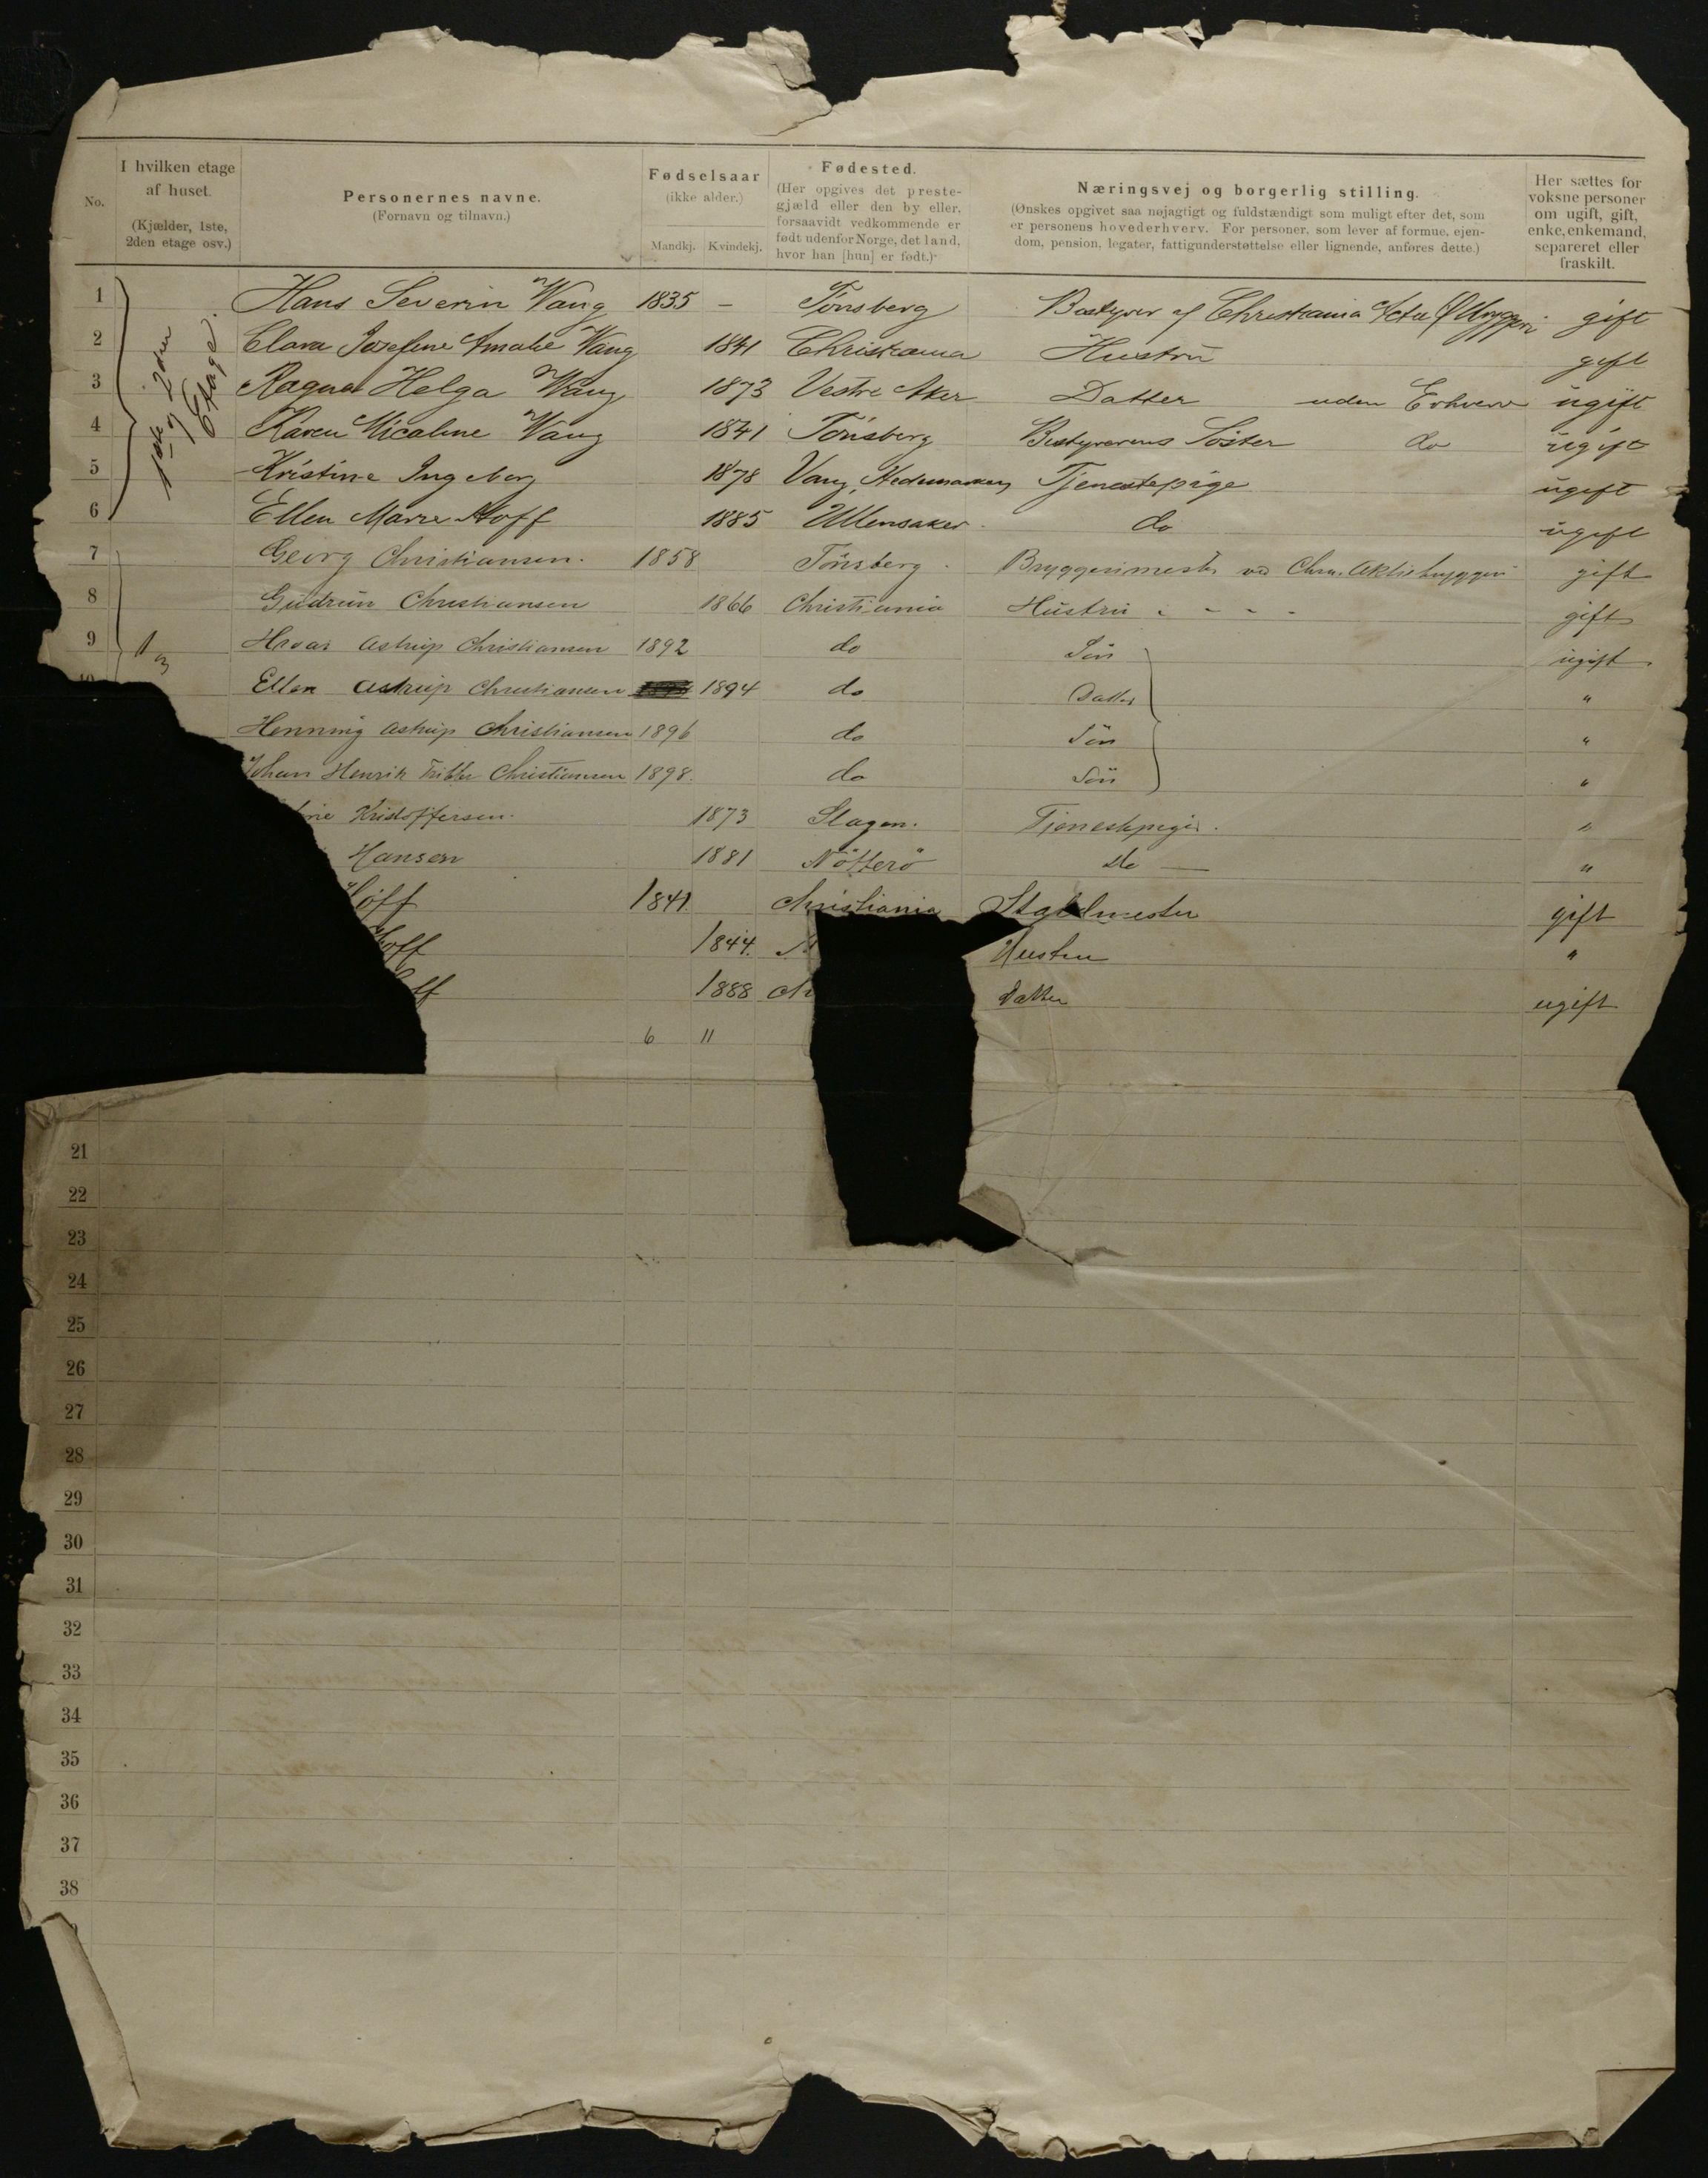 No.
I hvilken etage af huset.
(Kjælder, 1ste, 2den etage osv.)
Personernes navne.
(Fornavn og tilnavn.)
Fødselsaar
(ikke alder.)
Mandkj. Kvindekj.
Fødested.
(Her opgives det prestegjæld eller den by eller, forsaavidt vedkommende er født udenfor Norge, det land, hvor han [hun] er født.)
Næringsvej og borgerlig stilling.
(Ønskes opgivet saa nøjagtigt og fuldstændigt som muligt efter det, som er personens hovederhverv. For personer, som lever af formue, ejendom, pension, legater, fattigunderstøttelse eller lignende, anføres dette.)
Her sættes for voksne personer om ugift, gift, enke, enkemand, separeret eller fraskilt.
1ste og 2den Etage.
1 Hans Severin Wang 1835 – Tønsberg Bestyrer af Christiania gift
2 Clara Josefine Amalie Wang 1841 Christiania Hustru gift
3 Ragna Helga Wang 1873 Vestre Aker Datter uden Erhverv ugift
4 Karen Micaline Wang 1841 Tønsberg Bestyrerens Søster do ugift
5 Kristine Ingeborg 1878 Vang, Hedemarken Tjenestepige ugift
6 Ellen Marie Hoff 1885 Ullensaker do ugift
7 Georg Christiansen. 1858 Tönsberg. Bryggerimester ved Chra. Aktiebryggeri gift
8 Gudrun Christiansen 1866 Christiania Hustru " - - - gift
9 Hroar Astrup Christiansen 1892 do Sön ugift
Ellen Astrup Christiansen 1894 do Datter "
Henning Astrup Christiansen 1896 do Sön "
Johan Henrik Christiansen 1898. do Sön "
Kristoffersen. 1873 Slagen. Tjenestepige. "
Hansen 1881 Nötterö do — "
Hoff 1841. Christiania Staldmester gift
Hoff 1844. Hustru "
1888 Ch Datter ugift
6 11
21
22
23
24
25
26
27
28
29
30
31
32
33
34
35
36
37
38